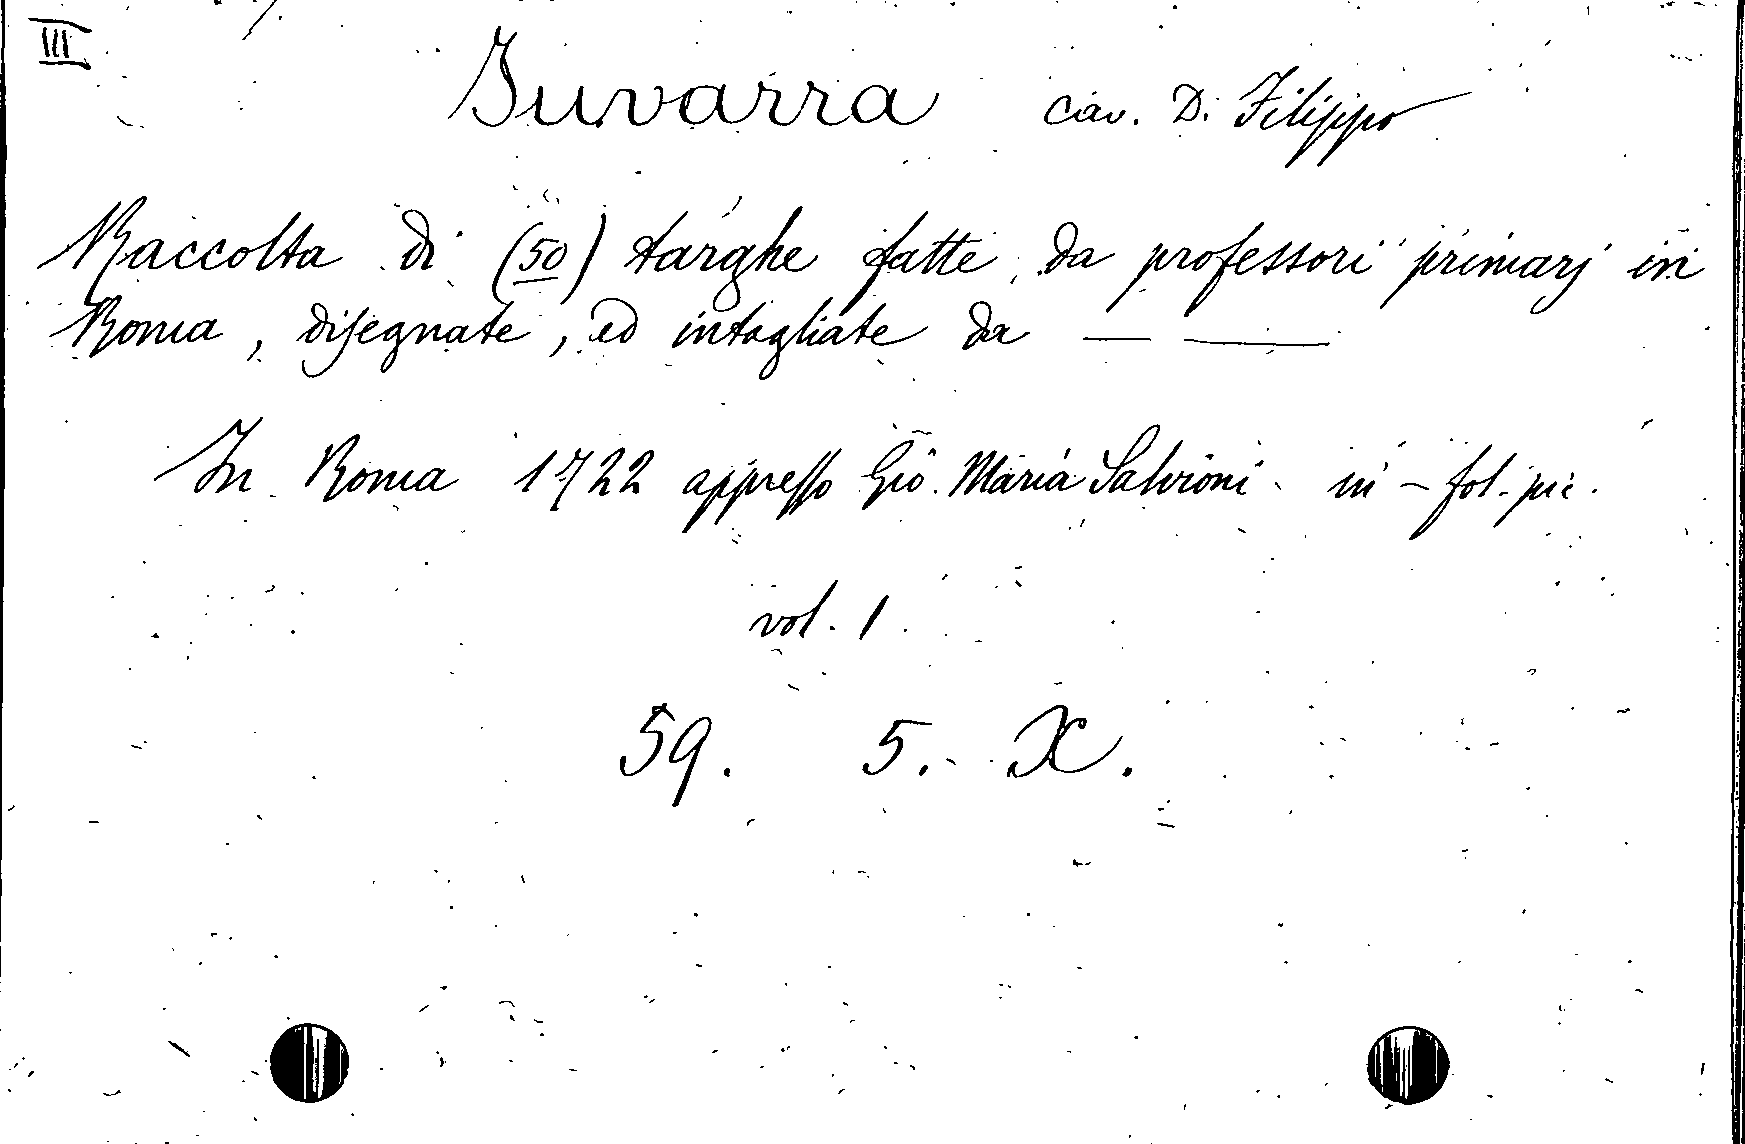 III
Juvarra cav. D. Filippo
Raccolta di (50) targhe fatte da professori primarj in
Roma, disegnate, ed intagliate da — —
In Roma 1722 appresso Gio. Maria Salvioni in - fol. pic.
vol. 1
59. 5. X.